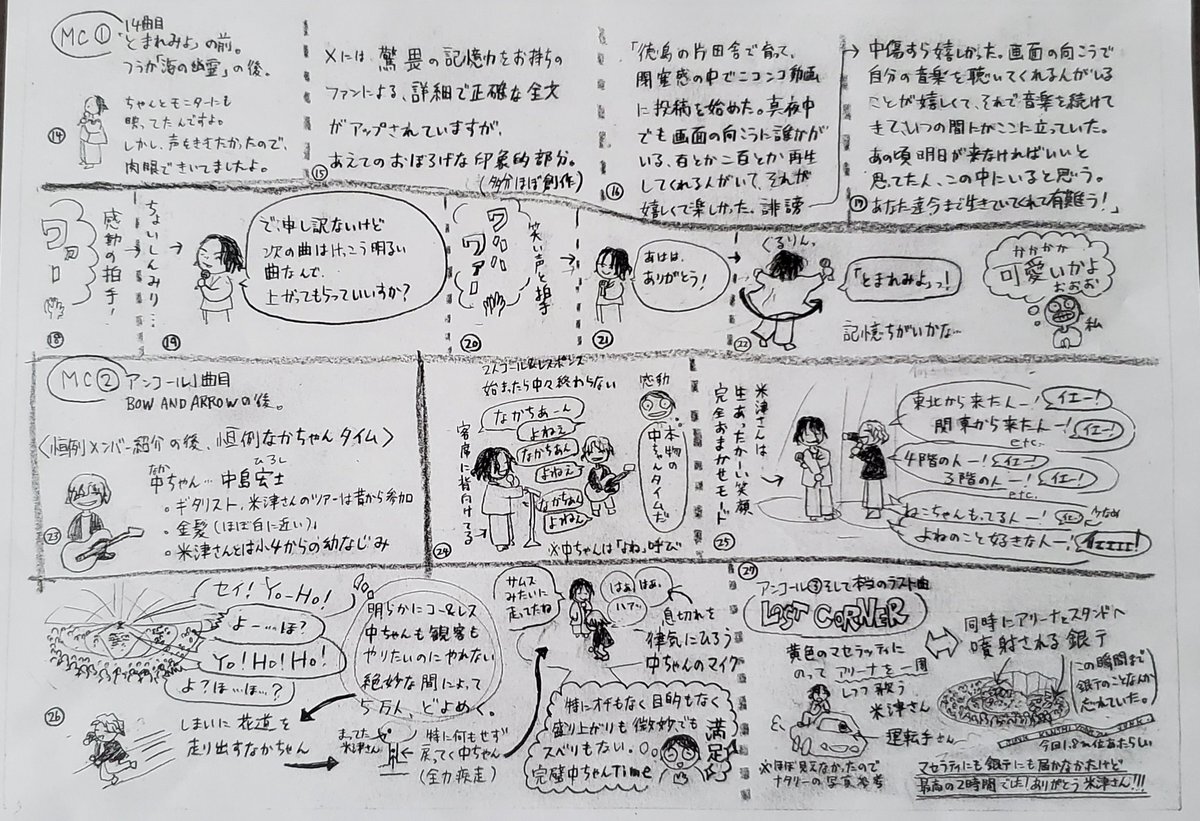 MC①
14曲目
「とまれみよ」の前。
つうか「海の幽霊」の後。
ちゃんとモニターにも
映ってたんですよ。
しかし、声をききたかったので、
肉眼できいてましたよ。
⑭
Xには、驚異の記憶力をお持ちの
ファンによる、詳細で正確な全文
がアップされていますが、
あえてのおぼろげな印象的部分。
(多分ほぼ創作)
⑮
「徳島の片田舎で育って、
閉塞感の中でニコニコ動画
に投稿を始めた。真夜中
でも画面の向こうに誰かが
いる、百とか二百とか再生
してくれる人がいて、それが
嬉しくて楽しかった。誹謗
⑯
中傷すら嬉しかった。画面の向こうで
自分の音楽を聴いてくれる人がいる
ことが嬉しくて、それで音楽を続けて
きて、いつの間にかここに立っていた。
あの頃明日が来なければいいと
思ってた人、この中にいると思う。
あなた達今まで生きていてくれて有難う!」
⑰
ワァー
感動の拍手!
⑱
ちょいしんみり…
⑲
で、申し訳ないけど
次の曲はけっこう明るい
曲なんで、
上がってもらっていいすか?
ワハハ
ワァー
笑い声と拍手
⑳
あはは、
ありがとう!
㉑
くるりん。
「とまれみよ」っ!
㉒
かかかか
可愛いかよ
おぉぉ
私
記憶ちがいかな…
MC②
アンコール1曲目
BOW AND ARROWの後。
〈恒例メンバー紹介の後、恒例なかちゃんタイム〉
なか
ひろし
中ちゃん…中島宏士
・ギタリスト、米津さんのツアーは昔から参加
・金髪(ほぼ白に近い)。
・米津さんとは小4からの幼なじみ
㉓
コール&レスポンス
始まったら中々終わらない
なかちあーん
よねぇ
なかちあん
よねぇ
なかちあん
よねぇ
客席に背向けてる
※中ちゃんは「よね」呼び
㉔
感動
本物の
中ちゃんタイムだ
米津さんは、
生あったかーい笑顔
完全おまかせモード
㉕
東北から来た人ー!
イエー!
関東から来た人ー!
イエー!
etc.
4階の人ー!
イエー!
3階の人ー!
イエー!
etc.
ねこちゃんもってる人ー!
イエー
少なめ
よねのこと好きな人ー!
イエエエエ!
セイ!Yo-Ho!
よー…ほ?
Yo!Ho!Ho!
よ?ほ…ほ…?
㉖
明らかにコー&レス
中ちゃんも観客も
やりたいのにやれない
絶妙な間によって
5万人、どよめく。
しまいに花道を
走り出すなかちゃん
まってた
米津さん
特に何もせず
戻ってく中ちゃん
(全力疾走)
サムスみたいに
走ってたね
はぁ、はぁ、
ハァ…
息切れを
律気にひろう
中ちゃんのマイク
特にオチもなく目的もなく
盛り上がりも微妙でも
スベりもない。
完璧中ちゃんTime
満足
アンコール③そして本当のラスト曲
LOST CORNER
黄色のマセラッティに
のってアリーナを一周
しつつ歌う
米津さん
運転手さん
※ほぼ見えなかったので
ナタリーの写真参考
同時にアリーナとスタンドへ
噴射される銀テ
この瞬間まで
銀テのことなんか
忘れていた。
マセラティにも銀テにも届かなかたけど
最高の2時間でした!ありがとう米津さん!!!